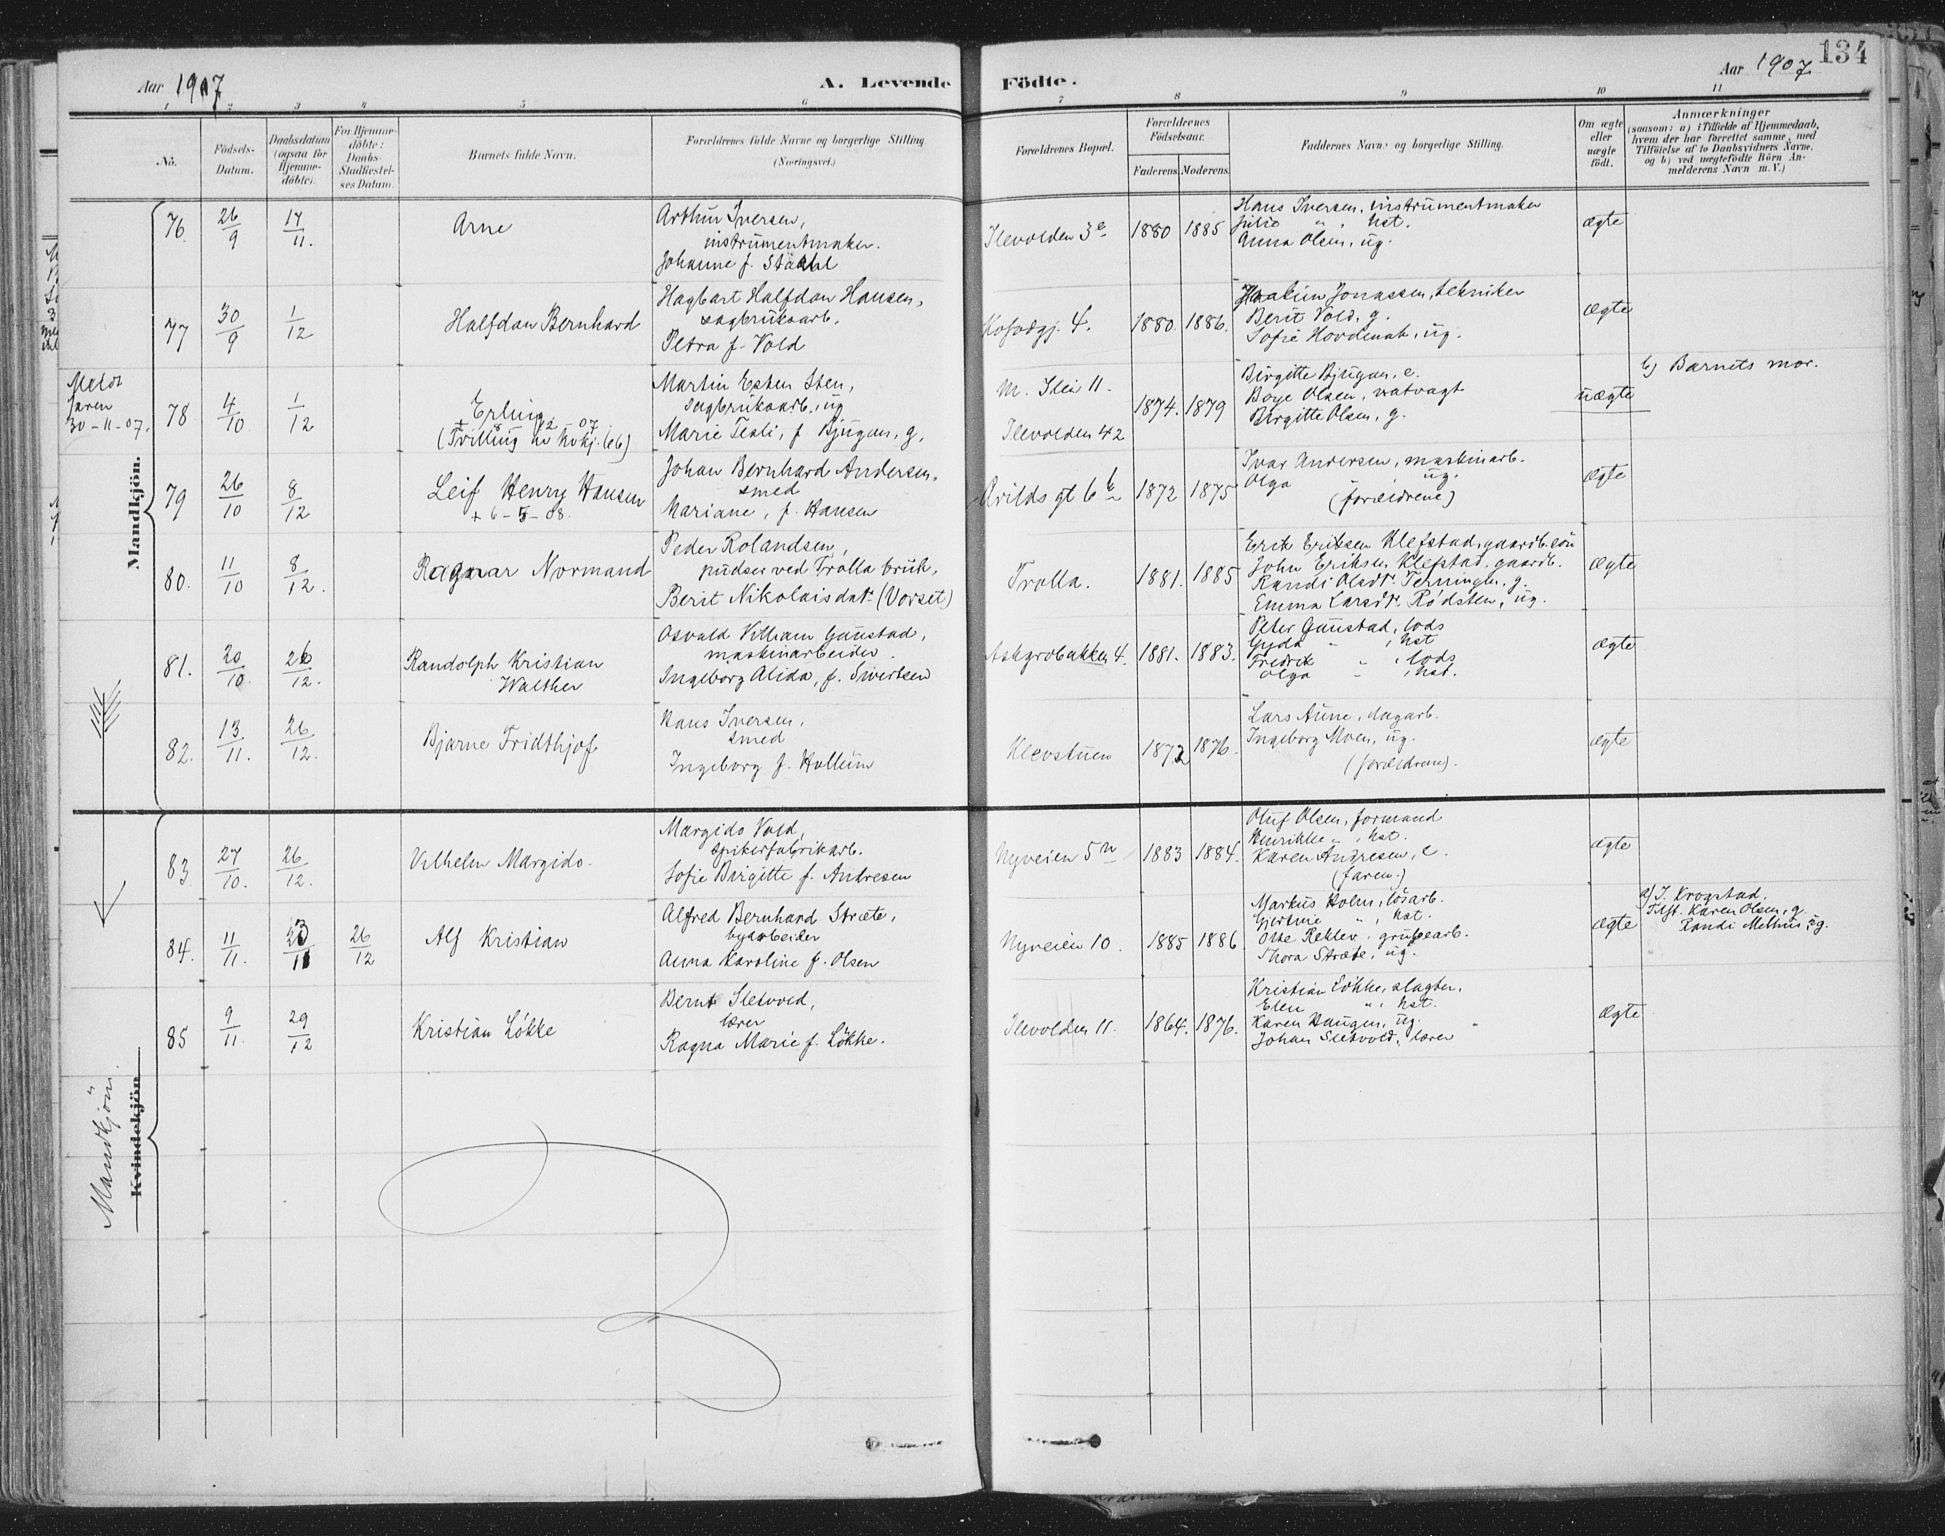 134
Aar 1907
A. Levende Födte.
Aar 1907
1 2 3 4 5 6 7 8 9 10 11
No.
Födsels-Datum.
Daabsdatum (ogsaa for Hjemme-döbte).
For Hjemme-döbte: Daabs-Stadfæstel-ses Datum.
Barnets fulde Navn.
Forældrenes fulde Navne og borgerlige Stilling (Næringsvei.)
Forældrenes Bopæl.
Forældrenes Födselsaar.
Faderens. Moderens.
Faddernes Navn og borgerlige Stilling.
Om ægte eller uægte födt.
Anmærkninger
(saasom: a) i Tilfælde af Hjemmedaab, hvem der har forrettet samme, med Tilföielse af to Daabsvidners Navne, og b) ved uægtefödte Börn An-melderens Navn m. V.)
Mandkjön.
76 26/9 17/11. Arne
Arthur Iversen,
instrumentmaker.
Johanne f. Stååhl
Ilevolden 3e 1880 1885
Hans Iversen, instrumentmaker
Julie " , hst.
Anna Olsen, ug.
ægte
77 30/9 1/12 Halfdan Bernhard
Hagbart Halfdan Hansen,
sagbruksarb.
Petra f. Vold
Kofoedgj. 4. 1880. 1886.
Haakon Jonassen, tekniker
Berit Vold, g.
Sofie Hovdenak, ug.
ægte
Meldt
faren
30-11-07.
78 4/10 1/12 Erling
+ 8 12 07
(Tvilling av kvkj. 66)
Martin Esten Sten,
sagbruksarb., ug
Marie Tesli, f. Bjugan, g.
M. Ilei 11.
Ilevolden 42
1874. 1879
Birgitte Bjugan, e.
Boye Olsen, natvagt
Birgitte Olsen, g.
uægte
b) Barnets mor.
79 26/10 8/12 Leif Henry Hansen
+ 6-5-08.
Johan Bernhard Andersen,
smed
Mariane, f. Hansen
Arilds gt 6b 1872 1875
Ivar Andersen, maskinarb.
Olga " , ug.
(forældrene)
ægte
80. 11/10 8/12. Ragnar Normand
Peder Rolandsen,
pudser ved Trolla bruk,
Berit Nikolaisdat. (Vorset)
Trolla. 1881. 1885
Erik Eriksen Klefstad, gaardb. sön
John Eriksen Klefstad, gaardb.
Randi Olsdtr. Terningen, g.
Emma Larsdtr. Rødsten, ug.
ægte
81. 20/10 26/12. Randolph Kristian
Walther
Osvald Villiam Gaustad,
maskinarbeider.
Ingeborg Alida, f. Sivertsen
Askgrobakken 4. 1881. 1883.
Peter Gaustad, lods
Gyda " , hst
Fredrik " , lods
Olga " , hst.
ægte
82. 13/11. 26/12. Bjarne Fridthjof
Hans Iversen,
smed
Ingeborg f. Hollum
Klevstuen 1872 1876.
Lars Aune, dagarb.
Ingeborg Moen, ug.
(forældrene).
ægte
83 27/10. 26/12. Vilhelm Margido.
Margido Vold,
spikerfabrikarb.
Sofie Birgitte f. Andresen
Nyveien 5 1883 1884.
Oluf Olsen, formand
Henrikke " , hst.
Karen Andresen, e.
(faren.)
ægte
84. 11/11. 23/11 26/12 Alf Kristian
Alfred Bernhard Stræte,
byarbeider
Anna Karoline f. Olsen
Nyveien 10. 1885 1886
Markus Holm, løsarb.
Gjertine " , hst.
Otte Reklev, grubearb.
Thora Stræte, ug.
ægte
a) J. Krogstad.
Tilst. Karen Olsen, g
Randi Melhus, ug.
85 9/11. 29/12 Kristian Løkke
Bernt Sletvold,
lærer
Ragna Marie f. Løkke.
Ilevolden 11. 1864. 1876.
Kristian Løkke, slagter,
Elen " , hst.
Karen Haugen, ug.
Johan Sletvold, lærer
ægte
Mandkjön.
Kvindekjön